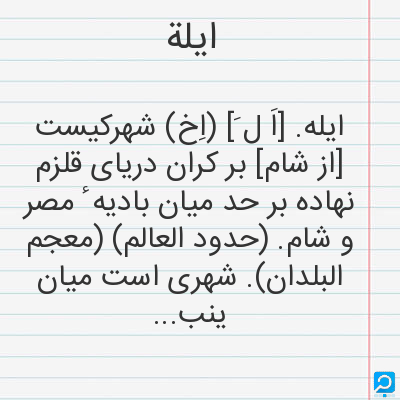 ایلة
ایله. [اَ ل َ] (اِخ) شهرکیست
[از شام] بر کران دریای قلزم
نهاده بر حد میان بادیه ٔ مصر
و شام. (حدود العالم) (معجم
البلدان). شهری است میان
ینب...